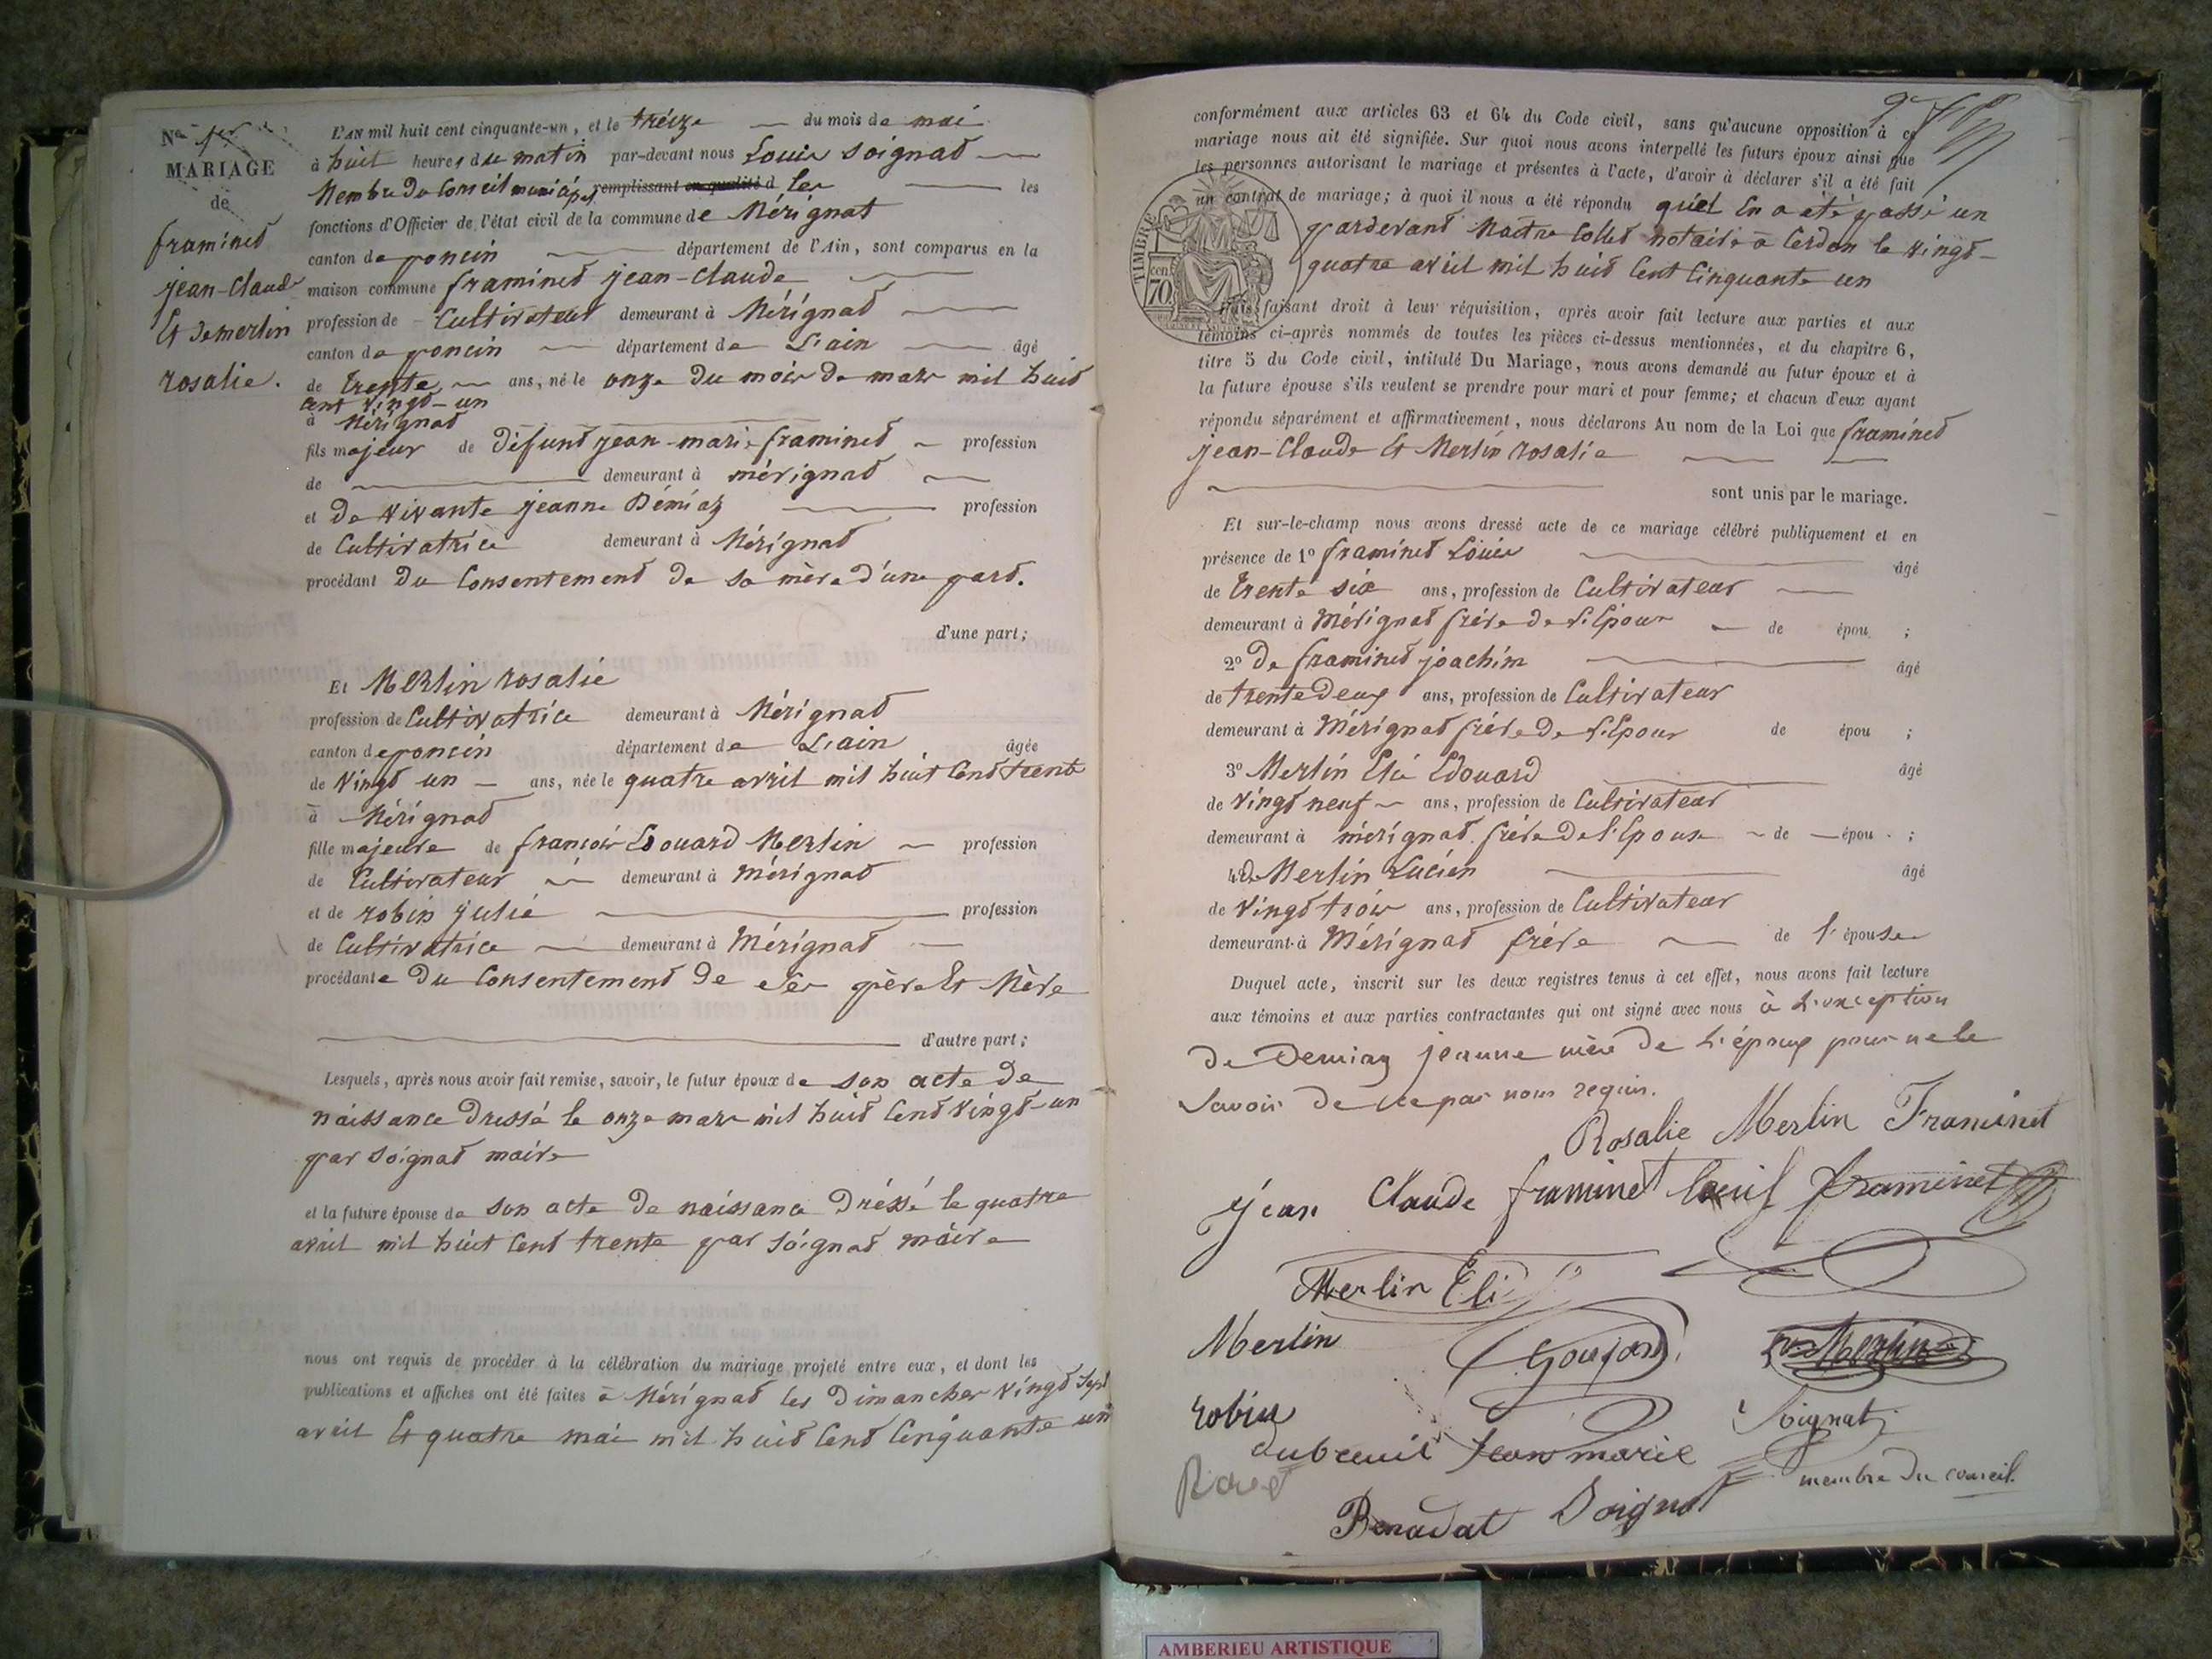 Nº 1er
MARIAGE
de
framinet
jean-Claude
Et de merlin
rosalie.
L'AN mil huit cent cinquante-un, et le treize du mois de mai
à huit heures du matin par-devant nous Louis Soignat
Membre du Conseil municipal remplissant en qualité d les les
fonctions d'Officier de l'état civil de la commune de Mérignat
canton de poncin département de l'Ain, sont comparus en la
maison commune framinet jean-claude
profession de Cultivateur demeurant à Mérignat
canton de poncin département de L'ain âgé
de trente ans, né le onze du mois de mars mil huit
cent vingt-un
à Mérignat
fils majeur de défunt jean-marie framinet profession
de demeurant à mérignat
et de vivante jeanne Démiaz profession
de Cultivatrice demeurant à Mérignat
procédant du Consentement de sa mère d'une part.
d'une part;
Et Merlin rosalie
profession de Cultivatrice demeurant à Mérignat
canton de poncin département de L'ain âgée
de vingt un ans, née le quatre avril mil huit Cent trente
à Mérignat
fille majeure de françois Edouard Merlin profession
de Cultivateur demeurant à Mérignat
et de robin julie profession
de Cultivatrice demeurant à Mérignat
procédante du Consentement de ses père Et Mère
d'autre part;
Lesquels, après nous avoir fait remise, savoir, le futur époux de son acte de
naissance dressé le onze mars mil huit Cent vingt-un
par Soignat maire
et la future épouse de son acte de naissance dréssé le quatre
avril mil huit Cent trente par Soignat maire
nous ont requis de procéder à la célébration du mariage projeté entre eux, et dont les
publications et affiches ont été faites à Mérignat les Dimanches vingt Sept
avril Et quatre mai mil huit Cent Cinquante un
conformément aux articles 63 et 64 du Code civil, sans qu'aucune opposition à ce
mariage nous ait été signifiée. Sur quoi nous avons interpellé les futurs époux ainsi que
les personnes autorisant le mariage et présentes à l'acte, d'avoir à déclarer s'il a été fait
un contrat de mariage; à quoi il nous a été répondu qu'il En a été passé un
pardevant Maître Collet notaire à Cerdon le vingt-
quatre avril mil huit Cent Cinquante un
TIMBRE
70
Puis faisant droit à leur réquisition, après avoir fait lecture aux parties et aux
témoins ci-après nommés de toutes les pièces ci-dessus mentionnées, et du chapitre 6,
titre 5 du Code civil, intitulé Du Mariage, nous avons demandé au futur époux et à
la future épouse s'ils veulent se prendre pour mari et pour femme; et chacun d'eux ayant
répondu séparément et affirmativement, nous déclarons Au nom de la Loi que framinet
jean-Claude Et Merlin rosalie
sont unis par le mariage.
Et sur-le-champ nous avons dressé acte de ce mariage célébré publiquement et en
présence de 1º framinet Louis âgé
de trente six ans, profession de Cultivateur
demeurant à Mérignat frére de l'Epoux de épou ;
2º De framinet joachim âgé
de trente deux ans, profession de Cultivateur
demeurant à Mérignat frére de l'Epoux de épou ;
3º Merlin Elie Edouard âgé
de vingt neuf ans, profession de Cultivateur
demeurant à mérignat frére de l'Epouse de épou ;
4º de Merlin Lucien âgé
de vingt trois ans, profession de Cultivateur
demeurant à Mérignat frére de l'épouse
Duquel acte, inscrit sur les deux registres tenus à cet effet, nous avons fait lecture
aux témoins et aux parties contractantes qui ont signé avec nous à L'exception
de Demiaz jeanne mère de L'époux pour ne le
savoir de ce par nous requis.
Rosalie Merlin Framinet
jean Claude framinet louis framinet
Merlin Eli
Merlin Goujon Merlin
robin Soignat
dubreuil Jean marie membre du conseil.
Benadat Soignat
AMBERIEU ARTISTIQUE